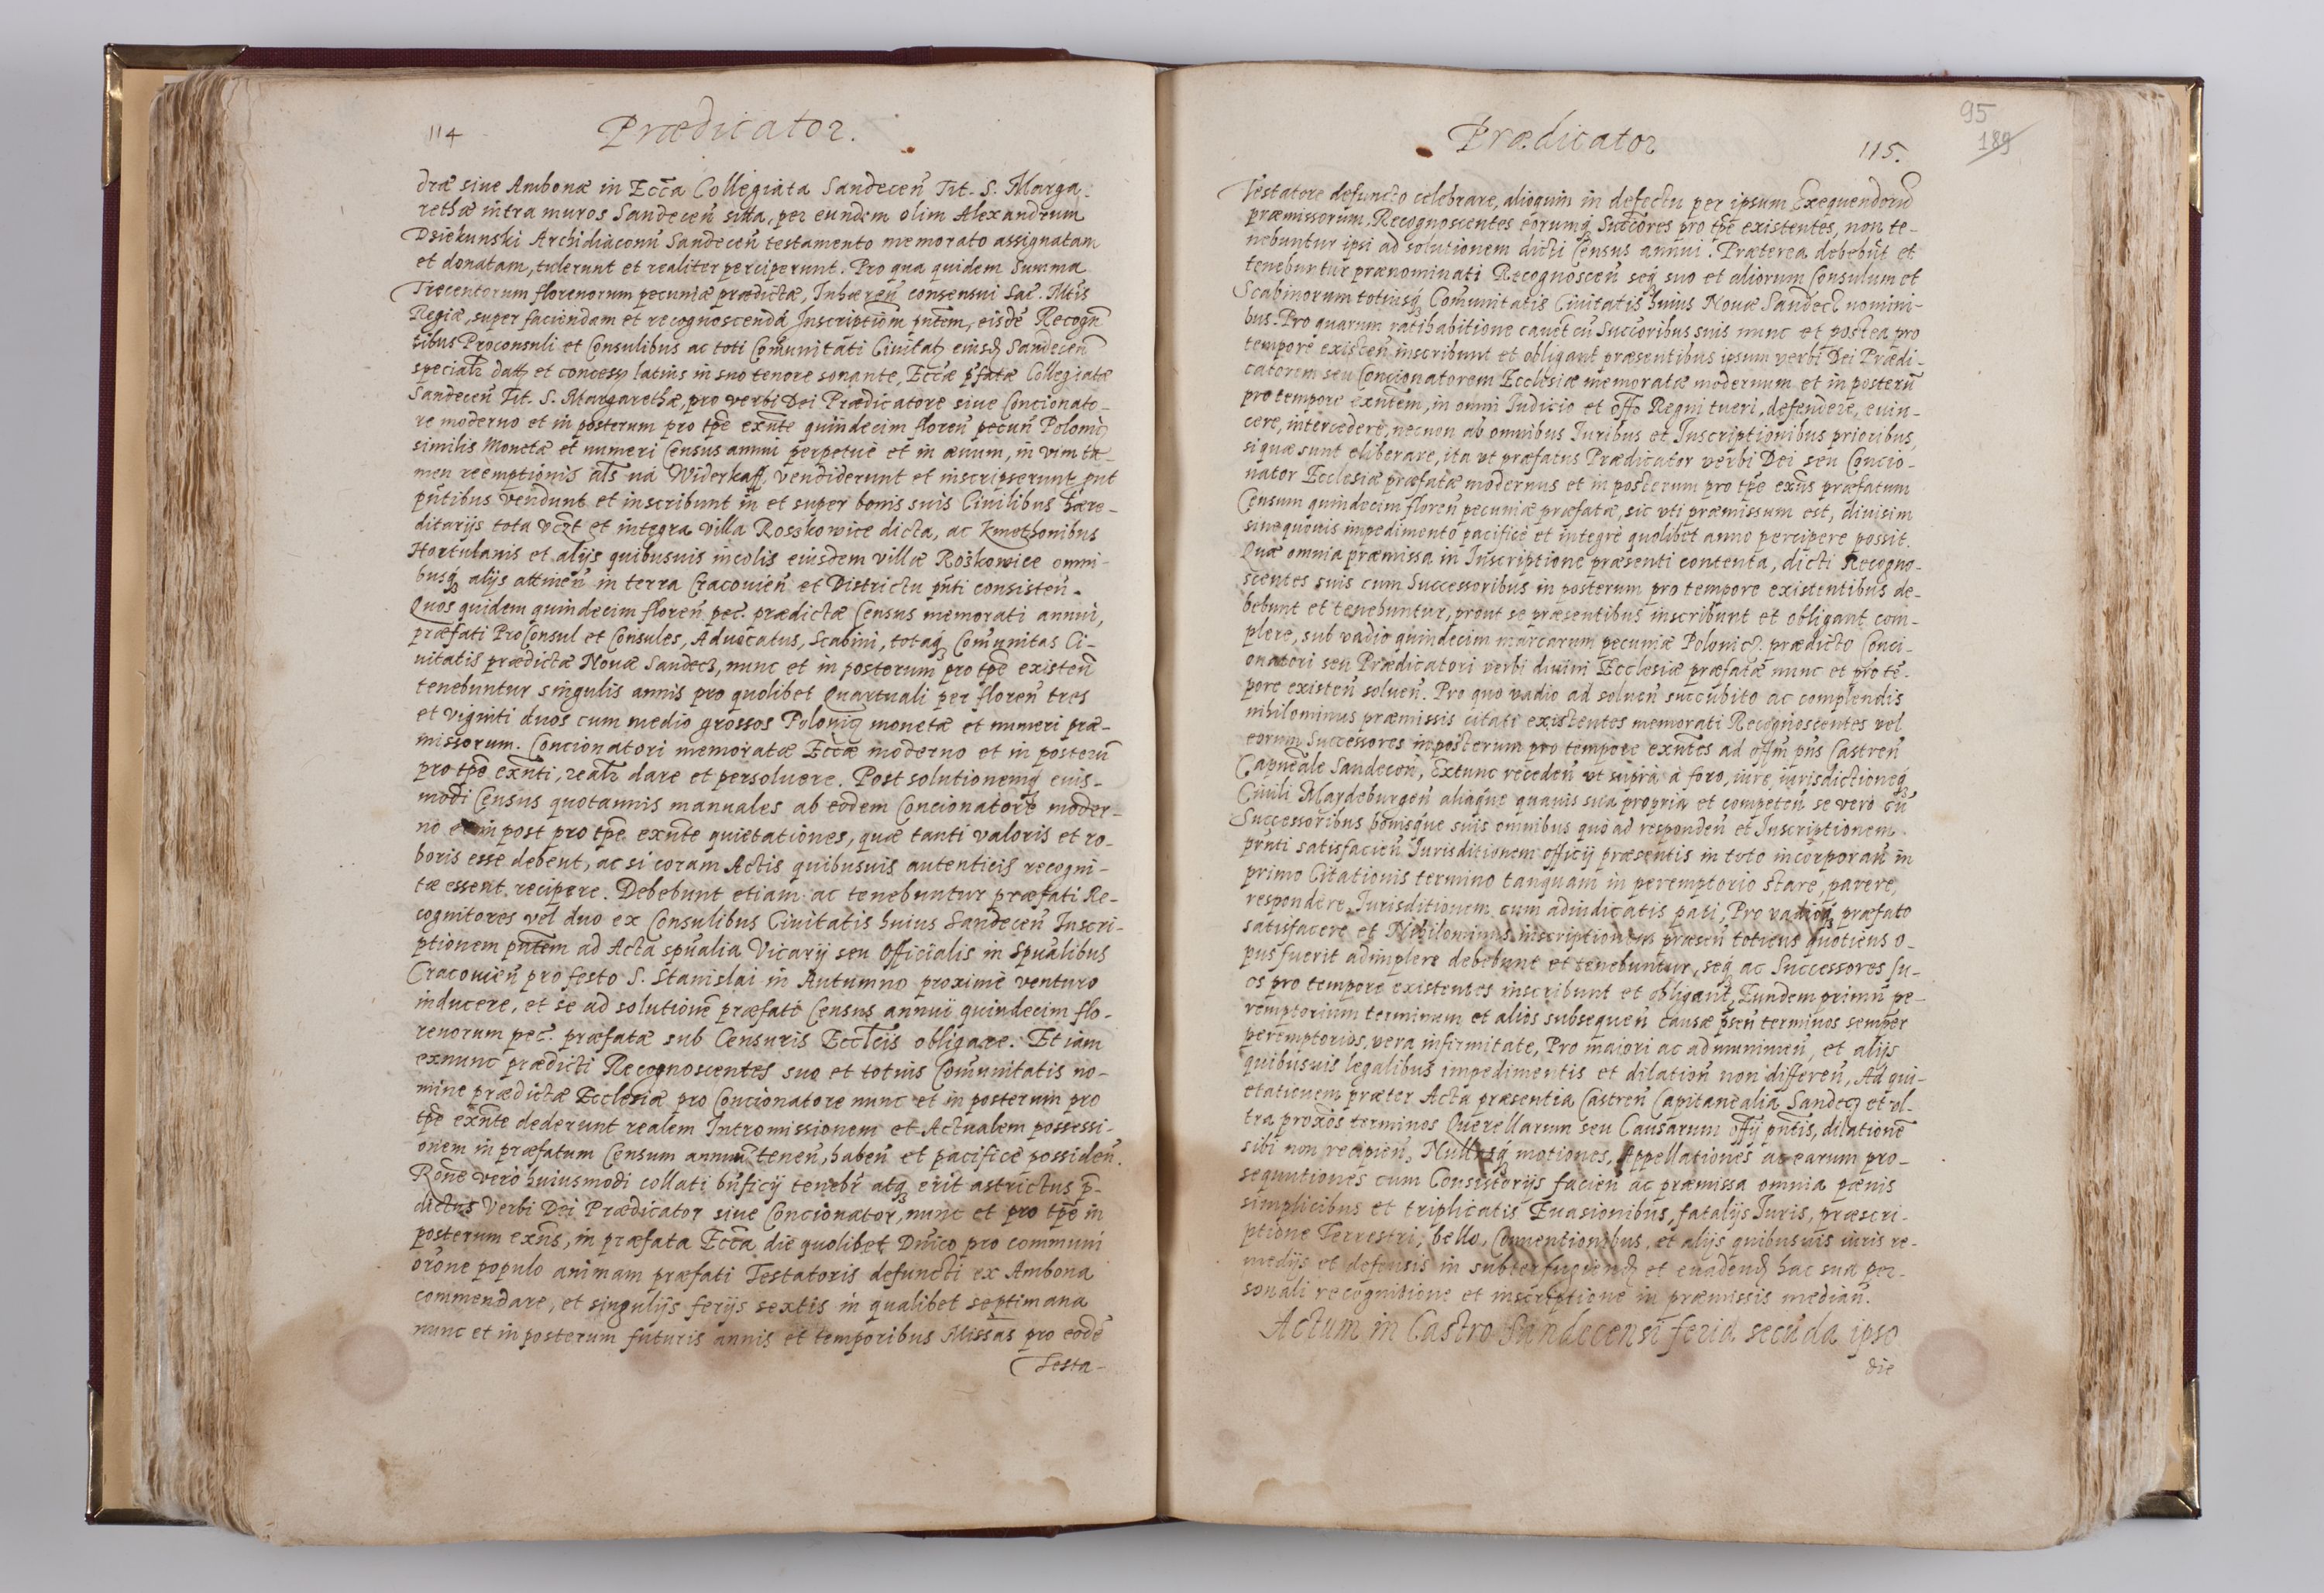 114
Prædicator.
dræ siue Ambonæ in Eccã Collegiata Sandeceñ Tit. S. Marga-
rethæ intra muros Sandeceñ sitta, per eundem olim Alexandrum
Dziekunski Archidiaconũ Sandeceñ testamento memorato assignatam
et donatam, tulerunt et realiter perciperunt. Pro qua quidem Summa
Trecentorum florenorum pecuniæ prædictæ, Inhæreñ consensui Sac. Mtis
Regiæ, super faciendam et recognoscendã Inscriptiom pñtem, eisdẽ Recogñ
tibus Proconsuli et Consulibus ac toti Comũnitati Ciuitat eiusd Sandeceñ
et concess latius in suo tenore sonante, Eccæ pfatæ Collegiatæ
Sandeceñ Tit. S. Margarethæ, pro verbi Dei Prædicatore siue Concionato-
re moderno et in posterum pro tpẽ exñte quindecim floreñ pecuñ Polonic
similis Monetæ et numeri Census annui perpetuè et in æuum, in vim ta-
men reemptionis als na Widerkaff, vendiderunt et inscripserunt put
pñtibus vendunt et inscribunt in et super bonis suis Ciuilibus hære-
ditarijs tota et integra villa Rosskowice dicta, ac Kmethonibus
Hortulanis et alijs quibusuis incolis eiusdem villæ Roskowice omni-
busq alijs attineñ in terra Cracouieñ et Districtu pñti consisteñ.
Quos quidem quindecim floreñ pec. prædictæ Census memorati annui,
præfati ProConsul et Consules, Aduocatus, Scabini, totaq Comũnitas Ci-
uitatis prædictæ Nouæ Sandecz, nunc et in posterum pro tpẽ existeñ
tenebuntur singulis annis pro quolibet Quartuali per floreñ tres
et viginti duos cum medio grossos Polonic monetæ et numeri præ-
missorum. Concionatori memoratæ Eccæ moderno et in posterũ
pro tpẽ exñti, dare et persoluere. Post solutionemq euis-
modi Census quotannis manuales ab eodem Concionatore moder-
no et in post pro tpẽ exñte quietationes, quæ tanti valoris et ro-
boris esse debent, ac si coram Actis quibusuis autenticis recogni-
tæ essent recipere. Debebunt etiam ac tenebuntur præfati Re-
cognitores vel duo ex Consulibus Ciuitatis huius Sandeceñ Inscri-
ptionem pñtem ad Acta spũalia Vicarij seu Officialis in Spũalibus
Cracouieñ pro festo S. Stanislai in Autumno proximè venturo
inducere, et se ad solutionẽ præfati Census annui quindecim flo-
renorum pec. præfatæ sub Censuris Ecclcis obligare. Et iam
exnunc prædicti Recognoscentes suo et totius Comũnitatis no-
mine prædictæ Ecclesiæ pro Concionatore nunc et in posterum pro
tpẽ exñte dederunt realem Intromissionem et Actualem possessi-
onem in præfatum Censum annuũ teneñ, habeñ et pacificè possideñ.
Rone verò huiusmodi collati bñficij tenebr atq erit astrictus p-
dictus Verbi Dei Prædicator siue Concionator, nunc et pro tpẽ in
posterum exñs, in præfata Eccã die quolibet Dñico pro communi
orõne populo animam præfati Testatoris defuncti ex Ambona
commendare, et singulijs ferijs sextis in qualibet septimana
nunc et in posterum futuris annis et temporibus Missas pro eodẽ
Testa-
95
189
Prædicator
115.
Testatore defuncto celebrare, alioquin in defectu per ipsum Exequendorũ
præmissorum, Recognoscentes eorumq Succõres pro tpẽ existentes, non te-
nebuntur ipsi ad solutionem dicti Census annui. Præterea debebũt et
tenebuntur prænominati Recognosceñ seq suo et aliorum Consulum et
Scabinorum totiusq Comũnitatis Ciuitatis huius Nouæ Sandecz nomini-
bus. Pro quarum ratihabitione cauẽt cũ Succõribus suis nunc et postea pro
tempore existeñ, inscribunt et obligant præsentibus ipsum verbi Dei Prædi-
catorem seu Concionatorem Ecclesiæ memoratæ modernum et in posterũ
pro tempore exñtem, in omni Iudicio et offo Regni tueri, defendere, euin-
cere, intercedere, necnon ab omnibus Iuribus et Inscriptionibus prioribus,
siquæ sunt eliberare, ita vt præfatus Prædicator verbi Dei seu Concio-
nator Ecclesiæ præfatæ modernus et in posterum pro tpẽ exñs præfatum
Censum quindecim floreñ pecuniæ præfatæ, sic vti præmissum est, diuisim
sinequouis impedimento pacificè et integrè quolibet anno percipere possit.
Quæ omnia præmissa in Inscriptione præsenti contenta, dicti Recogno-
scentes suis cum Successoribus in posterum pro tempore existentibus de-
bebunt et tenebuntur, prout se præsentibus inscribunt et obligant com-
plere, sub vadio quindecim marcarum pecuniæ Polonic. prædicto Conci-
onatori seu Prædicatori verbi diuini Ecclæsiæ præfatæ nunc et pro tẽ-
pore existeñ solueñ. Pro quo vadio ad solueñ succubito ac complendis
nihilominus præmissis citati existentes memorati Recognoscentes vel
eorum Successores inposterum pro tempore exñtes ad offm pñs Castreñ
Capneale Sandeceñ, Extunc recedeñ vt suprà à foro, iure, iurisdictioneq
Ciuili Maydeburgeñ aliaque quauis sua propria et competeñ se verò cũ
Successoribus bonisque suis omnibus quò ad respondeñ et Inscriptionem
pñti satisfacieñ Iurisditionem officij præsentis in toto incorporañ in
primo Citationis termino tanquam in peremptorio stare, parere,
respondere, Iurisditionem cum adiudicatis pati, Pro vadioq præfato
satisfacere et Nihilominus inscriptionem præseñ totiens quotiens o-
pus fuerit adimplere debebunt et tenebuntur, seq ac Successores su-
os pro tempore existentes inscribunt et obligant, Eundem primũ pe-
remptorium terminum et alios subsequeñ causæ pseñ terminos semper
peremptorios, vera infirmitate, Pro maiori ac ad munimeñ, et alijs
quibusuis legalibus impedimentis et dilatioñ non differeñ, Ad qui-
etationem præter Acta præsentia Castreñ Capitanealia Sandec et vl-
tra proxõs terminos Querellarum seu Causarum offij pñtis, dilationẽ
sibi non recipieñ, Nullasq motiones, Appellationes ac earum pro-
sequutiones cum Consistorijs facieñ ac præmissa omnia pœnis
simplicibus et triplicatis Euasionibus, fatalijs Iuris, præscri-
ptione Terrestri, bello, Conuentionibus, et alijs quibusuis iuris re-
medijs et defensis in subterfugiend et euadend hac sua per-
sonali recognitione et inscriptione in præmissis mediañ.
Actum in Castro Sandecensi feria secũda ipso
die